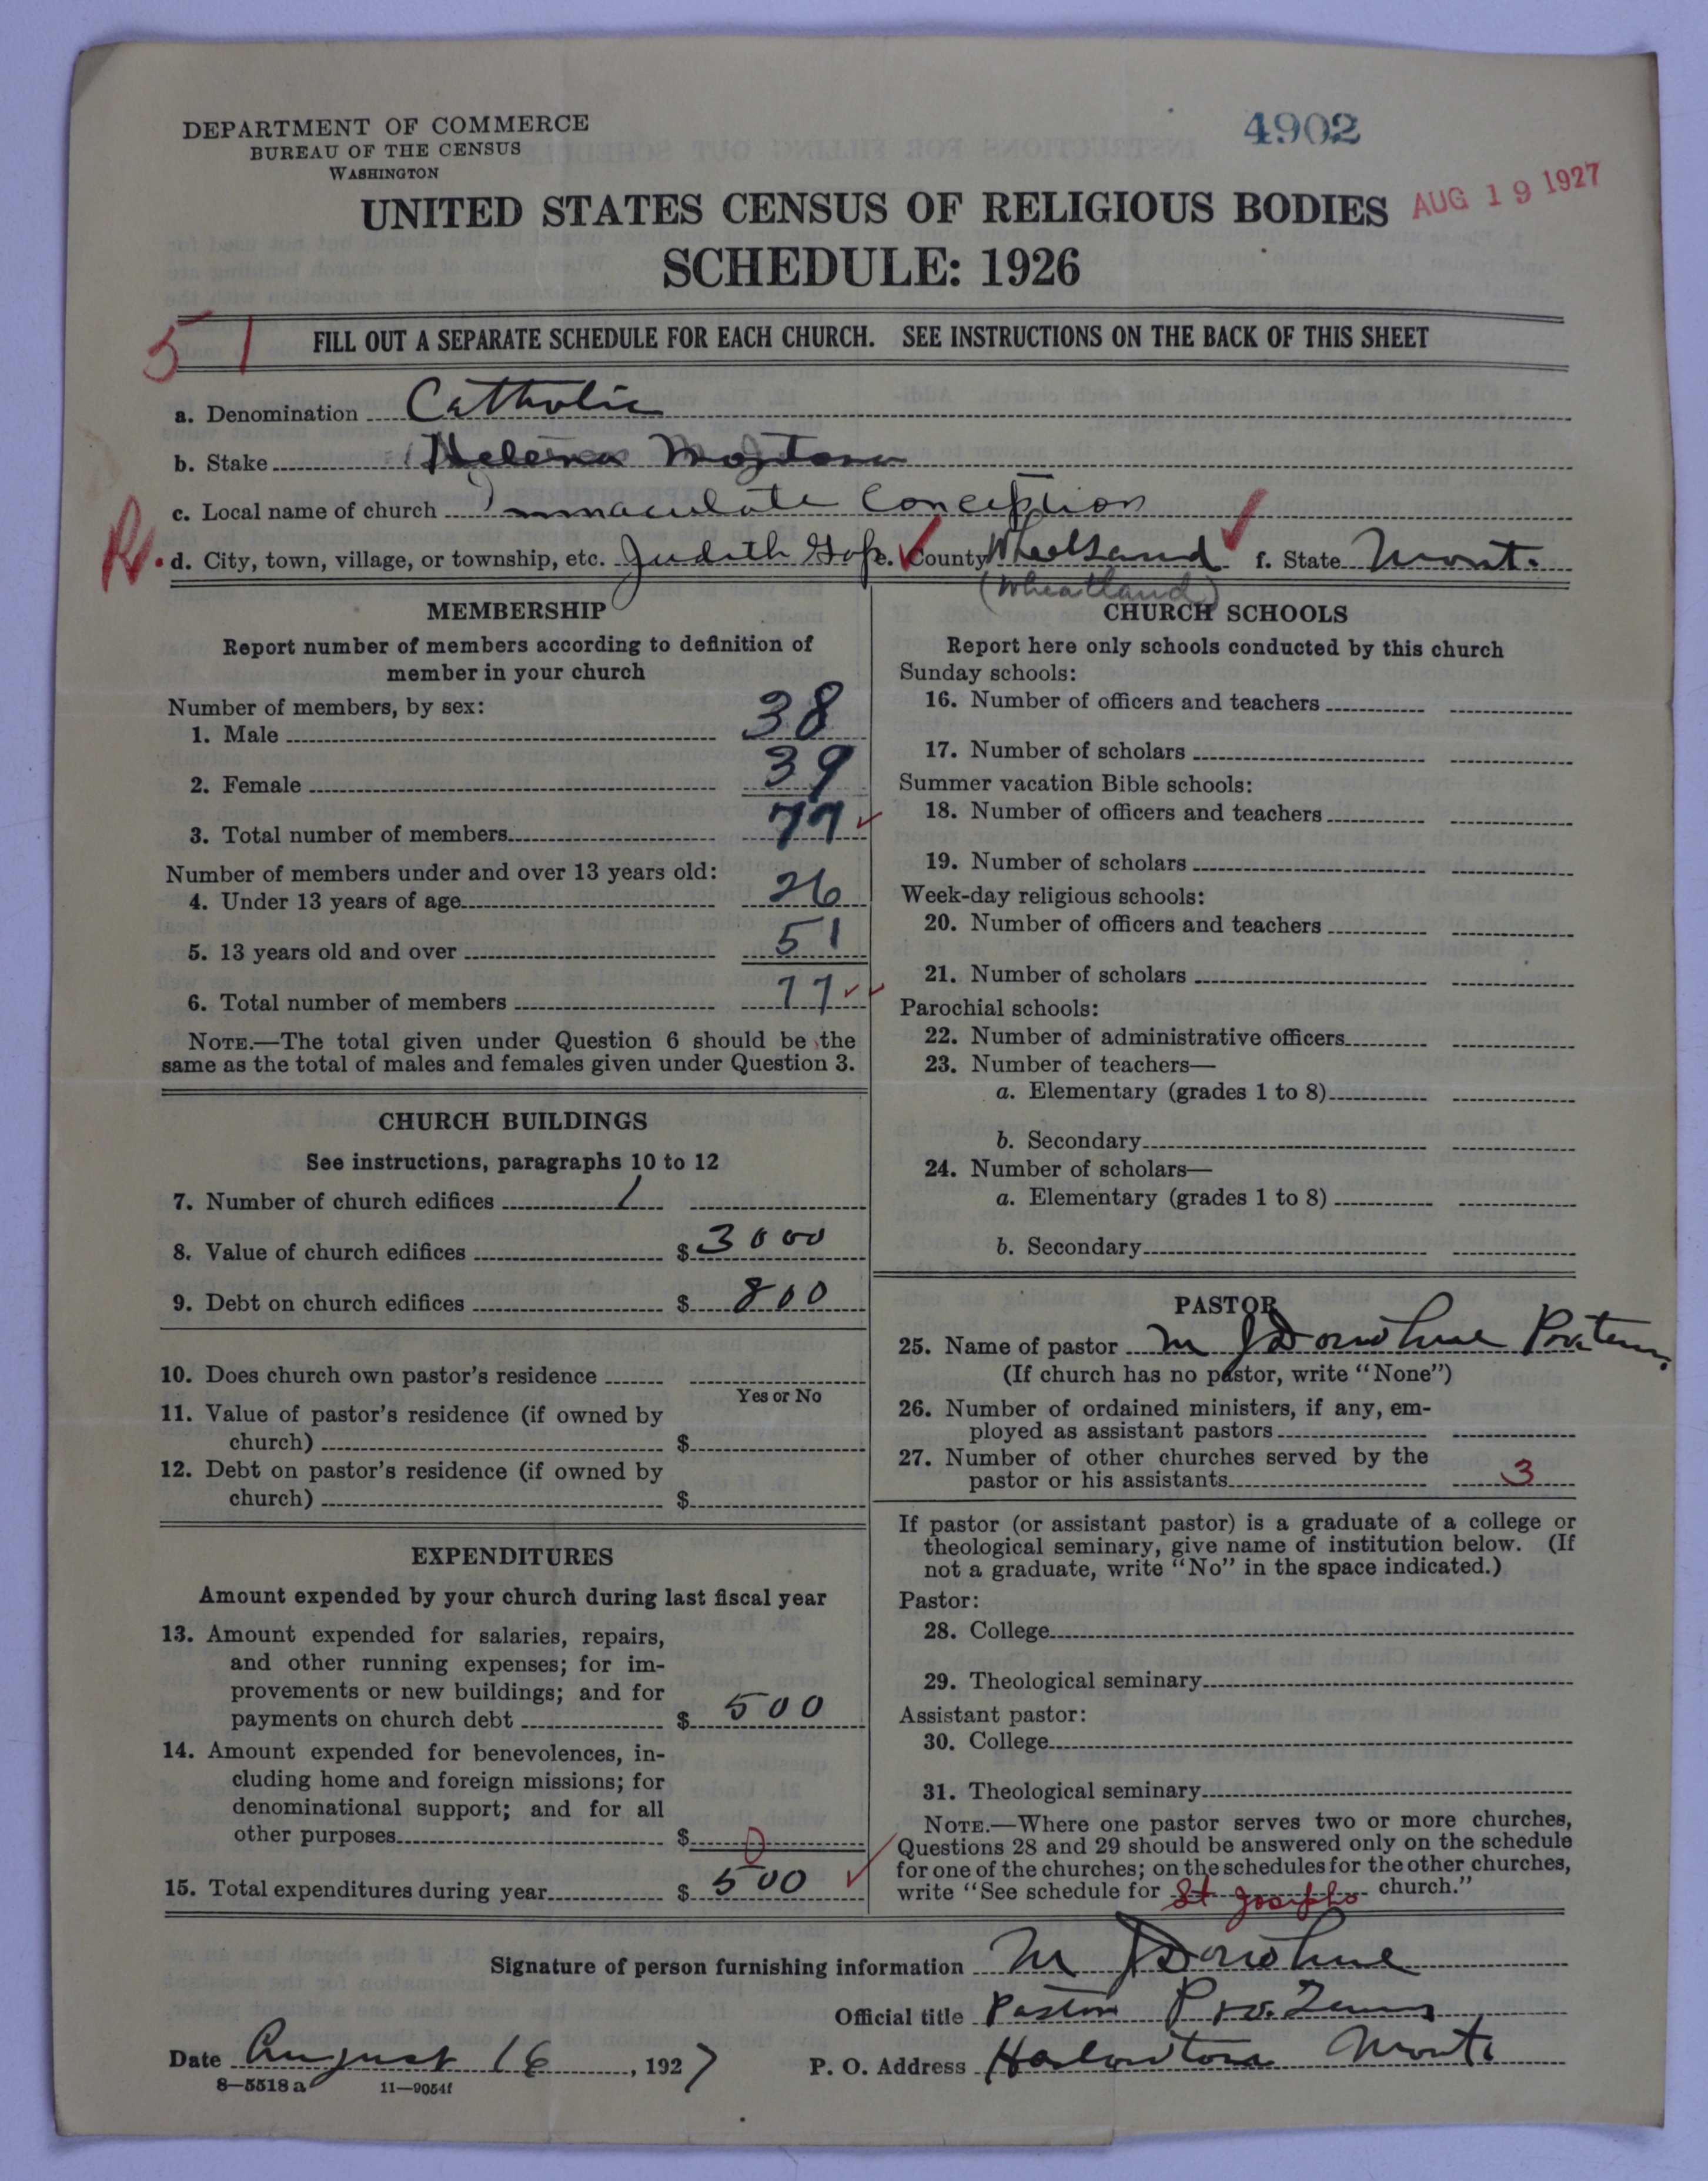 DEPARTMENT OF COMMERCE
BUREAU OF THE CENSUS
WASHINGTON
4902
UNITED STATES CENSUS OF RELIGIOUS BODIES
AUG 19 1927
SCHEDULE: 1926
51
FILL OUT A SEPARATE SCHEDULE FOR EACH CHURCH. SEE INSTRUCTIONS ON THE BACK OF THIS SHEET
a. Denomination Catholic
b. Stake Helena Montana
c. Local name of church Immaculate Conception
R. d. City, town, village, or township, etc. Judith Gap e. County Wheatland f. State Mont.
(Wheatland)
MEMBERSHIP
Report number of members according to definition of
member in your church
Number of members, by sex:
1. Male 38
2. Female 39
3. Total number of members 77
Number of members under and over 13 years old:
4. Under 13 years of age 26
5. 13 years old and over 51
6. Total number of members 77
NOTE.—The total given under Question 6 should be the
same as the total of males and females given under Question 3.
CHURCH BUILDINGS
See instructions, paragraphs 10 to 12
7. Number of church edifices 1
8. Value of church edifices $ 3000
9. Debt on church edifices $ 800
10. Does church own pastor's residence
Yes or No
11. Value of pastor's residence (if owned by
church) $
12. Debt on pastor's residence (if owned by
church) $
EXPENDITURES
Amount expended by your church during last fiscal year
13. Amount expended for salaries, repairs,
and other running expenses; for im-
provements or new buildings; and for
payments on church debt $ 500
14. Amount expended for benevolences, in-
cluding home and foreign missions; for
denominational support; and for all
other purposes $ 0
15. Total expenditures during year $ 500
CHURCH SCHOOLS
Report here only schools conducted by this church
Sunday schools:
16. Number of officers and teachers
17. Number of scholars
Summer vacation Bible schools:
18. Number of officers and teachers
19. Number of scholars
Week-day religious schools:
20. Number of officers and teachers
21. Number of scholars
Parochial schools:
22. Number of administrative officers
23. Number of teachers—
a. Elementary (grades 1 to 8)
b. Secondary
24. Number of scholars—
a. Elementary (grades 1 to 8)
b. Secondary
PASTOR
25. Name of pastor M J Donohue Pro tem.
(If church has no pastor, write "None")
26. Number of ordained ministers, if any, em-
ployed as assistant pastors
27. Number of other churches served by the
pastor or his assistants 3
If pastor (or assistant pastor) is a graduate of a college or
theological seminary, give name of institution below. (If
not a graduate, write "No" in the space indicated.)
Pastor:
28. College
29. Theological seminary
Assistant pastor:
30. College
31. Theological seminary
NOTE.—Where one pastor serves two or more churches,
Questions 28 and 29 should be answered only on the schedule
for one of the churches; on the schedules for the other churches,
write "See schedule for St Josephs church."
Signature of person furnishing information M J Donohue
Official title Pastor Pro. Tem
Date August 16, 1927 P. O. Address Harlowton Mont.
8—5518 a 11—9054f